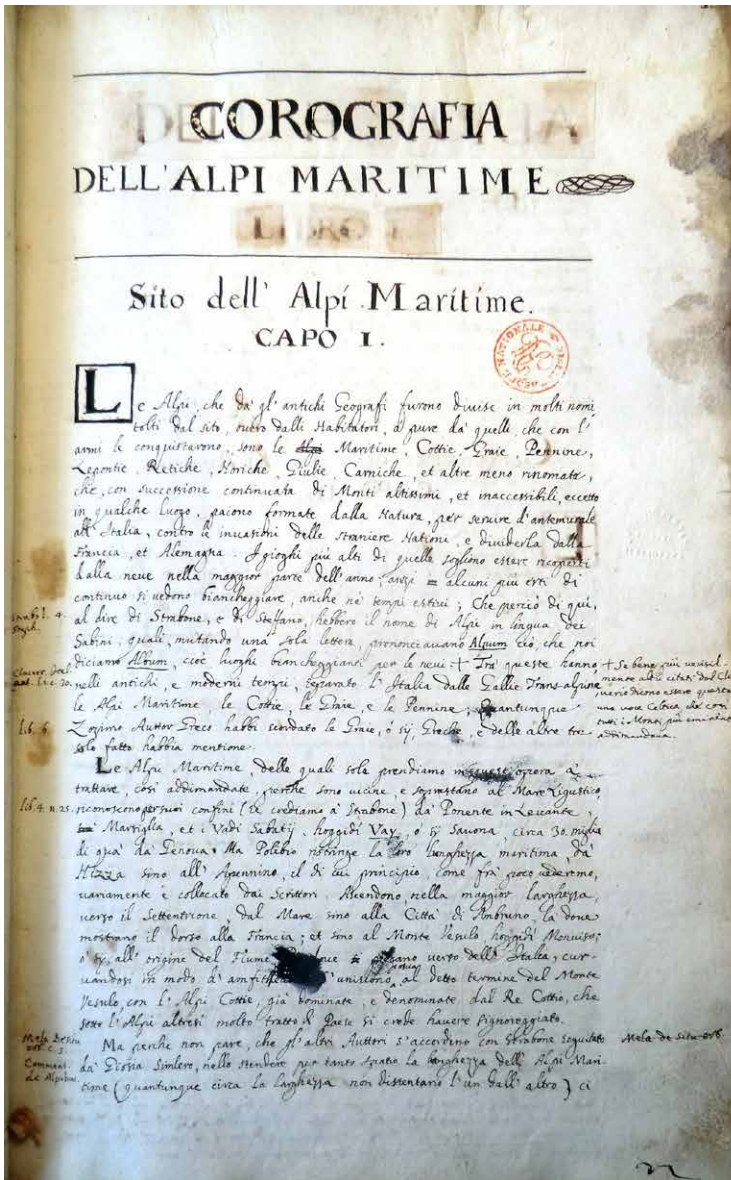 COROGRAFIA
DELL'ALPI MARITIME
LIBRO I
Sito dell' Alpi Maritime.
CAPO I.
Le Alpi, che da' gl' antichi Geografi furono divise in molti nomi,
tolti dal sito, overo dalli Habitatori, o pure da' quelli, che con l'
armi le conquistarono, sono le Alpi Maritime, Cottie, Graie, Pennine,
Lepontie, Retiche, Noriche, Giulie, Carniche, et altre meno rinomate,
che, con successione continuata di Monti altissimi, et inaccessibili, eccetto
in qualche luogo, paiono formate dalla Natura, per servire d'antemurale
all' Italia, contro le invasioni delle straniere Nationi, e dividerla dalla
Francia, et Alemagna. I gioghi più alti di quelle sogliono essere ricoperti
dalla neve nella maggior parte dell' anno; anzi alcuni più erti di
continuo si vedono biancheggiare, anche ne' tempi estivi; Che perciò di qui,
al dire di Strabone, e di Steffano, hebbero il nome di Alpi in lingua dei
Sabini, quali, mutando una sola lettera, prononciavano Alpum ciò, che noi
diciamo Album, cioè luoghi biancheggianti per le nevi: + Tra' queste hanno
nelli antichi, e moderni tempi, separato l' Italia dalle Gallie Transalpine
le Alpi Maritime, le Cottie, le Graie, e le Pennine; quantunque
Zozimo Auttor Greco habbi scordato le Graie, ò sij Greche, e delle altre tre
solo fatto habbia mentione.
Le Alpi Maritime, delle quali sole prendiamo in quest' opera à
trattare, così addimandate, perche sono vicine, e soprastano al Mare Ligustico,
riconoscono per suoi confini (se crediamo à Strabone) da' Ponente in Levante,
Marsiglia, et i Vadi Sabatij, hoggidì Vay, ò sij Savona, circa 30. miglia
di quà da Genova. Ma Polibio ristringe la loro lunghezza maritima, da
Nizza sino all' Apennino, il di cui principio, come frà poco vederemo,
variamente è collocato dai Scrittori. Havendo, nella maggior larghezza,
verso il Settentrione, dal Mare sino alla Città di Ambruno, la dove
mostrano il dorso alla Francia; et sino al Monte Vesulo hoggidì Monviso;
ò sij, all' origine del Fiume piegano verso dell' Italia, cur-
vandosi in modo d' s' uniscono, al detto termine del Monte
Vesulo, con l' Alpi Cottie, già dominate, e denominate dal Re Cottio, che
sotto l' Alpi altresi molto tratto di Paese si crede havere signoreggiato.
Ma perche non pare, che gl' altri Auttori s' accordino con Strabone seguitato
da' Giosia Simlero, nello stendere per tanto spatio la lunghezza dell' Alpi Mari-
time (quantunque circa la larghezza non dissentano l' un dall' altro) ci
Strab. l. 4.
Steph.
Cluver. Ital.
ant. l. 1. c. 30.
lib. 6.
lib. 4 n. 25.
Mela
Comment.
de Alpibus.
+ Se bene più verisil-
mente dal Clu-
verio essere questa
una voce Celtica che con
tutti i Monti più eminenti
addimandava.
Mela de situ orb.